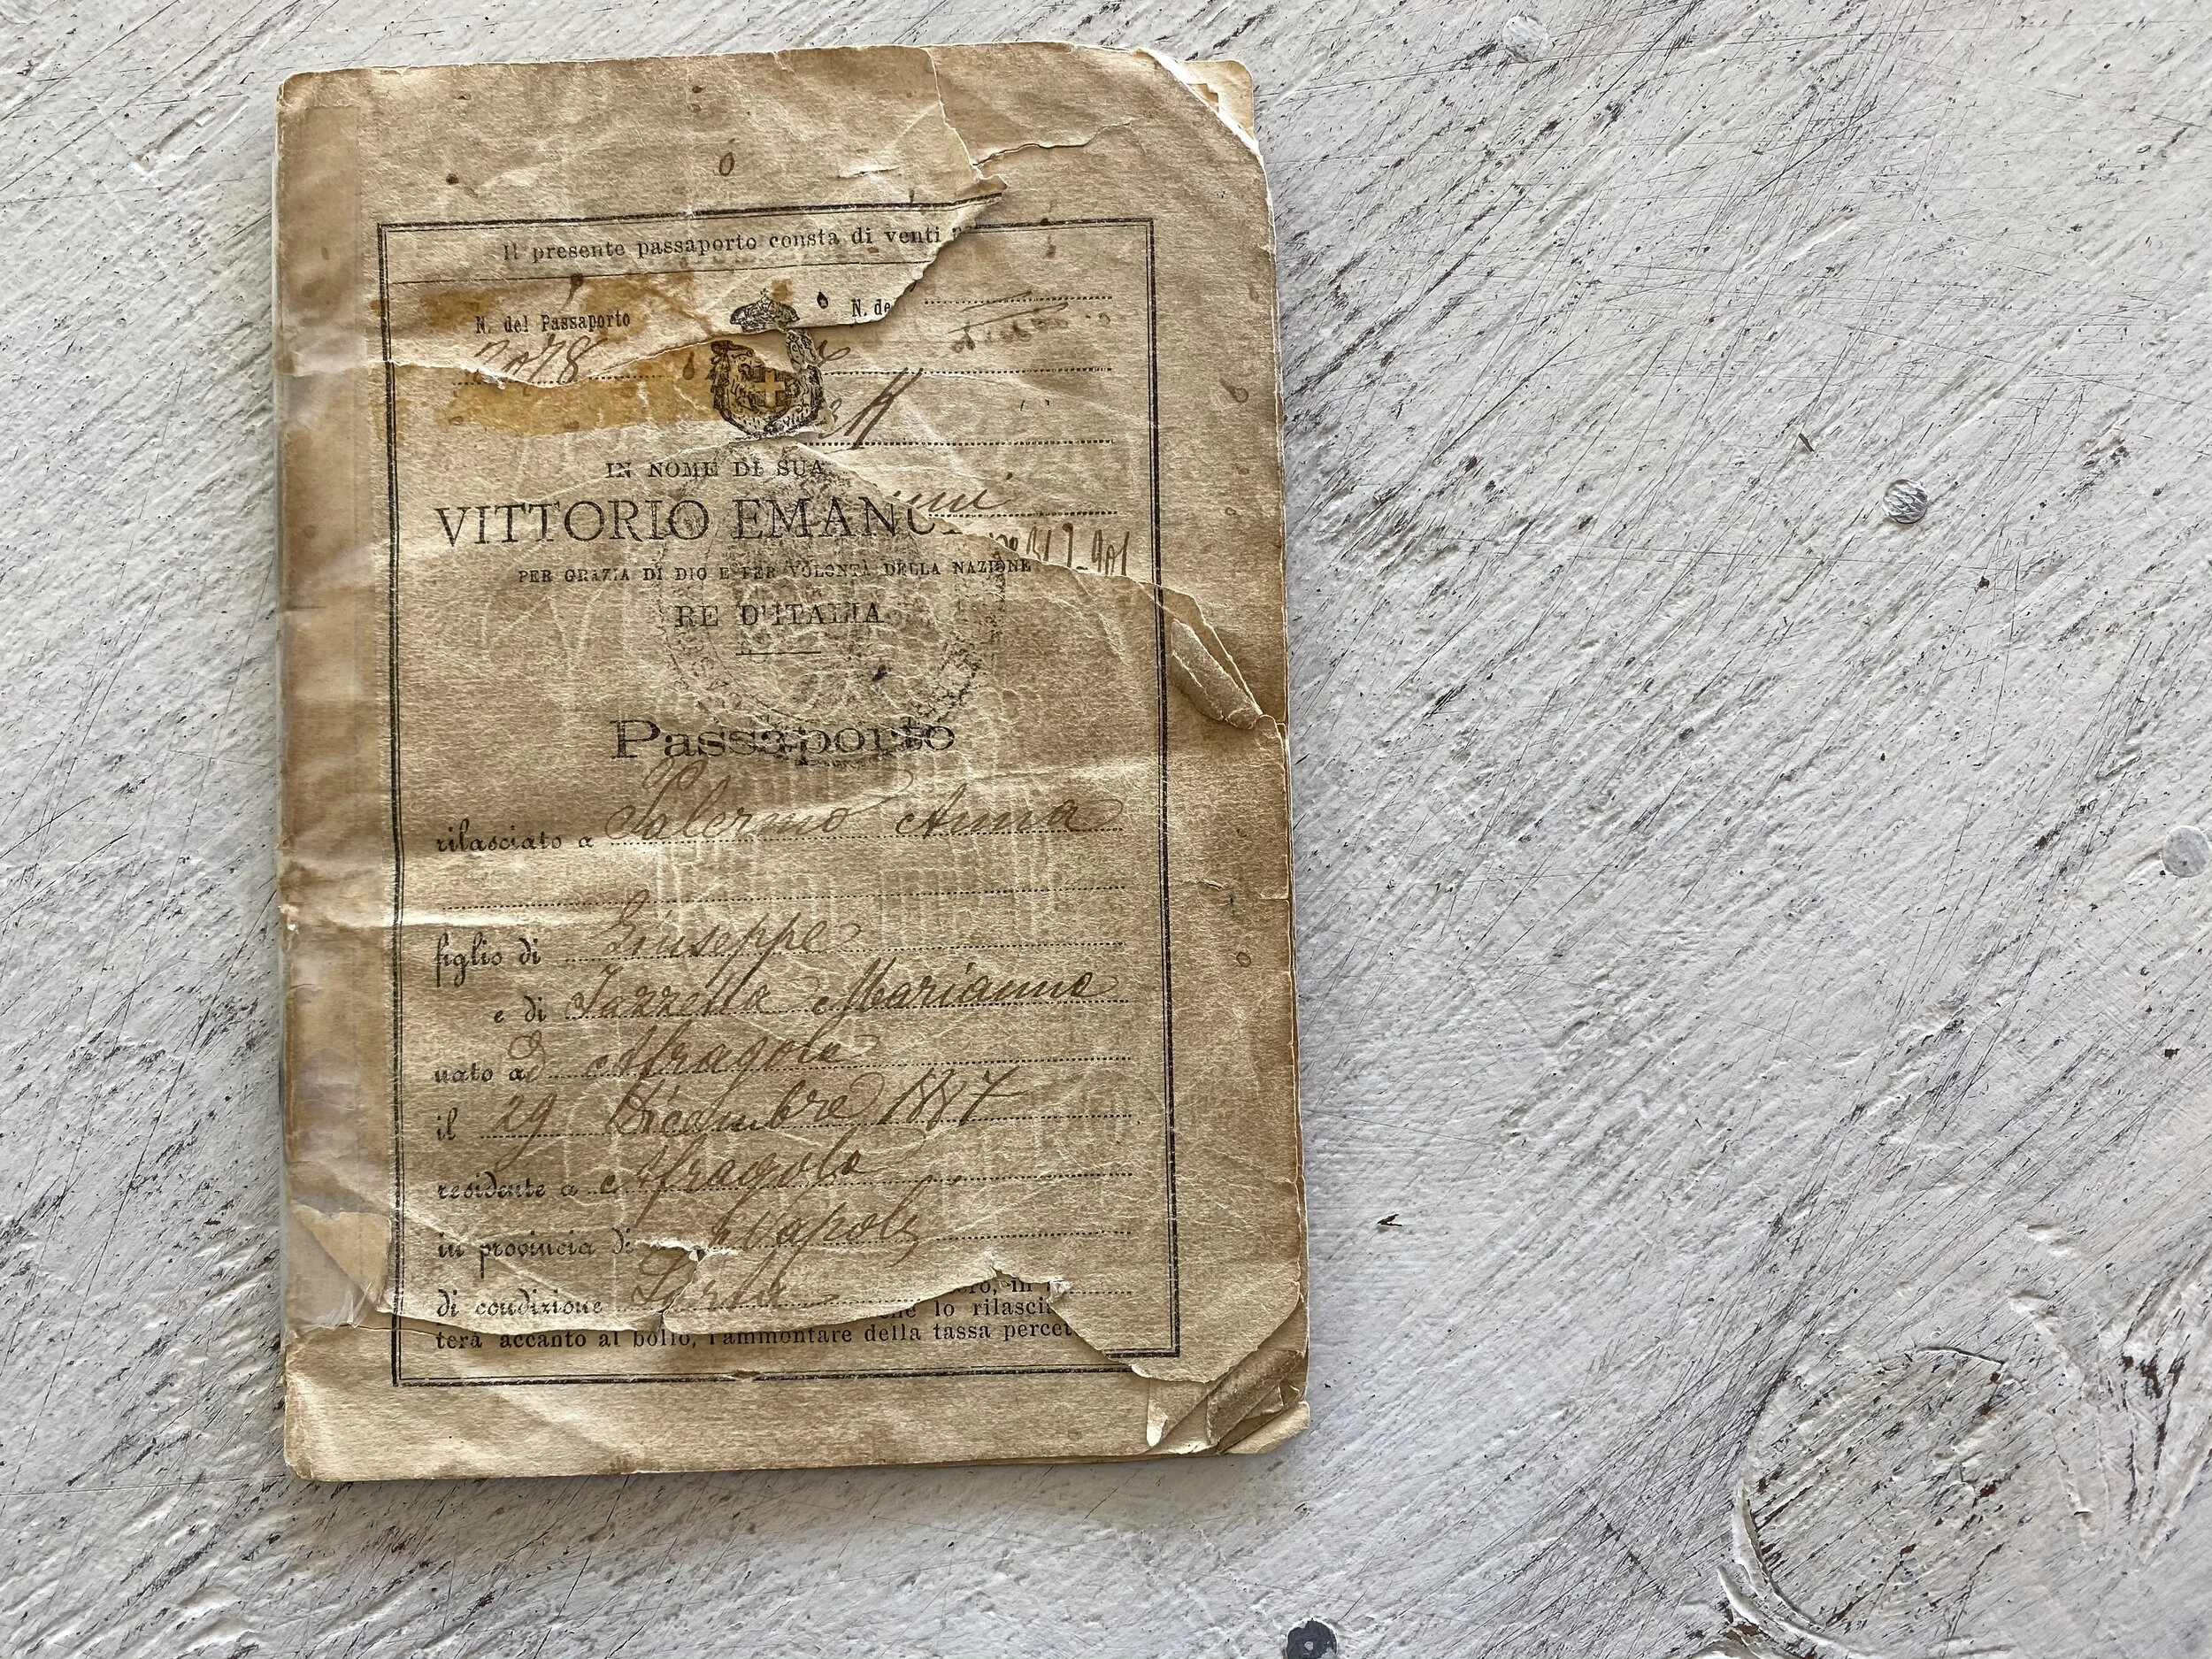 Il presente passaporto consta di venti
N. del Passaporto N. de
2078
IN NOME DI SUA
VITTORIO EMANU
PER GRAZIA DI DIO E PER VOLONTÀ DELLA NAZIONE
RE D'ITALIA
Passaporto
rilasciato a Salermo Anna
figlio di Giuseppe
e di Iazzetta Marianna
nato ad Afragola
il 29 Dicembre 1887
residente a Afragola
in provincia di Napoli
di condizione
lo rilasci
terà accanto al bollo, l'ammontare della tassa percet